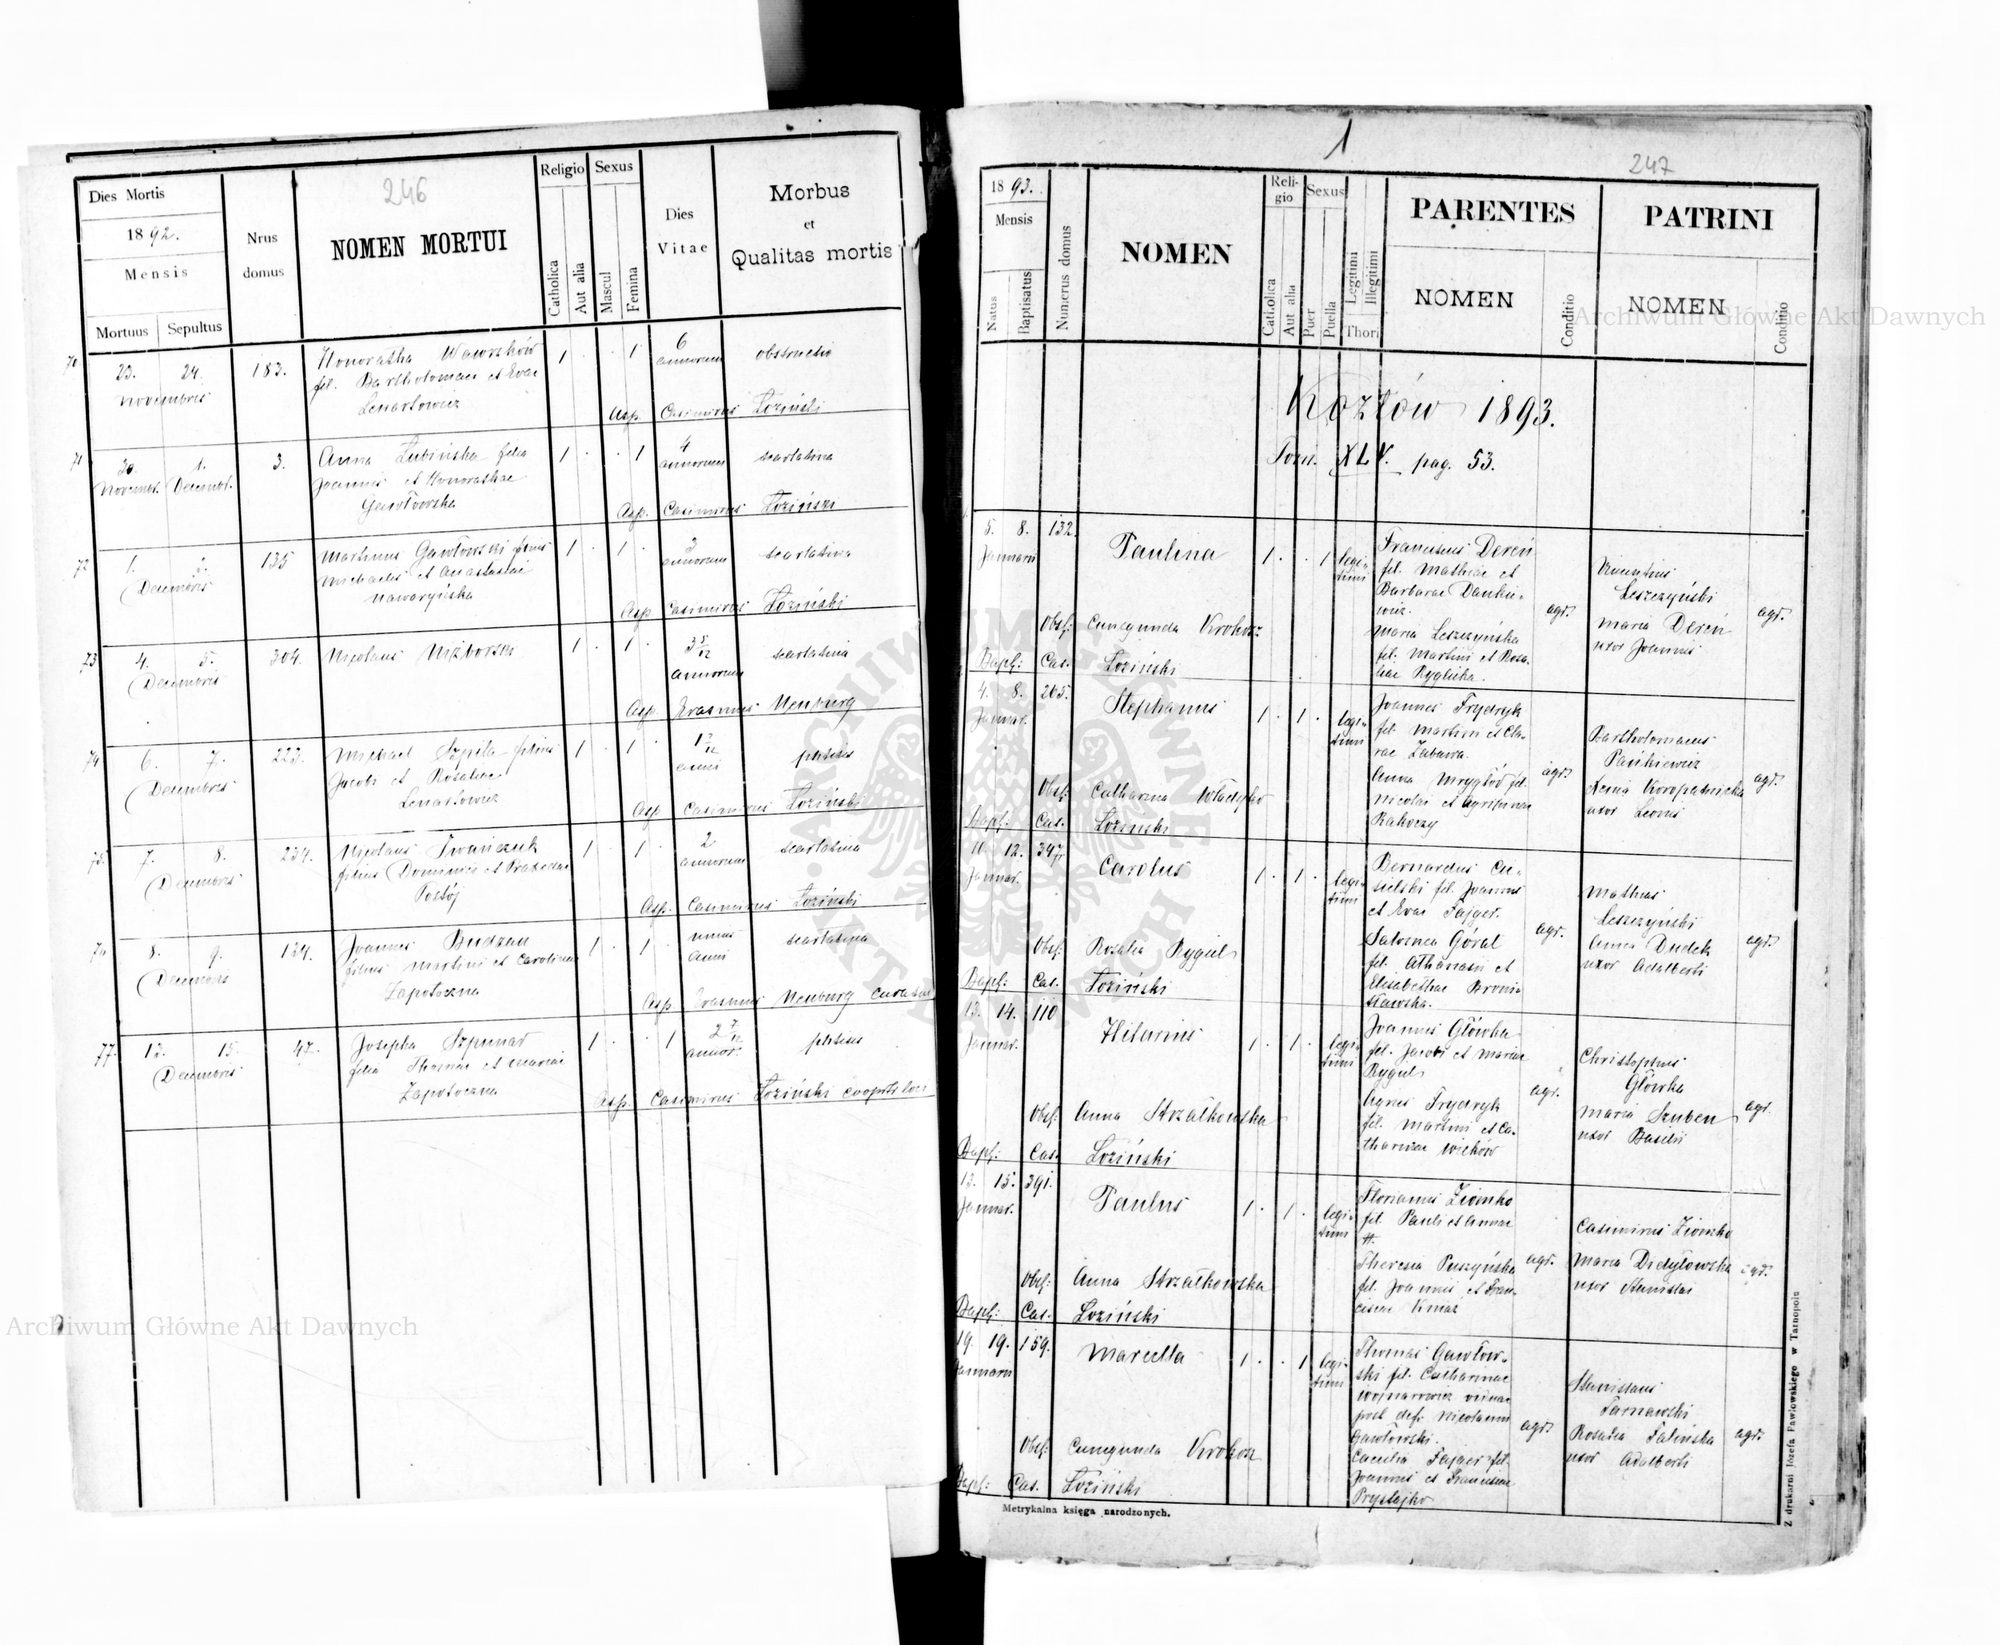 246
Dies Mortis
1892.
Mensis
Mortuus
Sepultus
Nrus
domus
NOMEN MORTUI
Religio
Catholica
Aut alia
Sexus
Mascul
Femina
Dies
Vitae
Morbus
et
Qualitas mortis
70
23. 24. 183.
Novembris
Honoratha
fil. Bartholomaei et Evae
Lenartowicz
1 . . 1
6
annorum
obstructio
Asp. Casimirus Łoziński
71
30. 1. 3.
Novemb. Decemb.
Anna Łubińska filia
Joannis et Honorathae
Gawłowska
1 . . 1
4
annorum
scarlatina
Asp. Casimirus Łoziński
72
1. 135
Decembris
Martinus Gawłowski filius
Michaelis et Anastasiae
Nawaryńska
1 . 1 .
3
annorum
scarlatina
Asp. Casimirus Łoziński
73
4. 5. 304.
Decembris
Nicolaus
1 . 1 .
3 5/12
annorum
scarlatina
Asp. Erasmus Neuburg
74
6. 7. 223.
Decembris
Michael Szpila filius
Jacobi et Rosaliae
Lenartowicz
1 . 1 .
anni
phtisis
Asp. Casimirus Łoziński
75
7. 8. 234.
Decembris
Nicolaus Iwańczuk
filius Dominici et Praxedae
Postój
1 . 1 .
2
annorum
scarlatina
Asp. Casimirus Łoziński
76
8. 9. 134.
Decembris
Joannes Budzan
filius Martini et Carolinae
Zapotoczna
1 . 1 .
unius
anni
scarlatina
Asp Erasmus Neuburg
77.
13. 15. 47.
Decembris
Josepha Szpunar
filia Thomae et Mariae
Zapotoczna
1 . . 1
2 7/12
annor.
phtisis
Asp. Casimirus Łoziński
1
247
1893.
Mensis
Natus
Baptisatus
Numerus domus
NOMEN
Reli-
gio
Catholica
Aut alia
Sexus
Puer
Puella
Legitimi
Illegitimi
Thori
PARENTES
NOMEN
Conditio
PATRINI
NOMEN
Conditio
Kozłów 1893.
Tom. XLV. pag. 53.
5. 8. 132.
Januarii
Paulina
1 . . 1
legi-
timi
Franciscus Dereń
fil. Mathiae et
Barbarae Danku-
wicz.
Maria Leszczyńska
fil. Martini et Rosa-
liae Rygliska.
agr.
Vincentius
Leszczyński
Maria Dereń
uxor Joannis
agr.
Obst: Cunegunda Krokosz
Bapt: Cas. Łoziński
4. 8. 205.
Januar.
Stephanus
1 . 1 .
legi-
timi
Joannes Frydryk
fil. Martini et Cla-
rae Zabawa.
Anna Mrygłód fil.
Nicolai et Agripinae
Rakoczy
agr.
Bartholomaeus
Pańkiewicz
Xenia Koropatnicka
uxor Leonis
agr.
Obst: Catharina Władyka
Bapt: Cas. Łoziński
10. 12. 347.
Januar.
Carolus
1 . 1 .
legi-
timi
Bernardus Cu-
sielski fil. Joannis
et Evae Fajger.
Salomea Góral
fil. Athanasii et
Elisabethae Broni-
sławska.
agr.
Mathias
Leszczyński
Anna Dudek
uxor Adalberti
agr.
Obst: Rosalia Rygiel
Bapt: Cas. Łoziński
13. 14. 110
Januar.
Hilarius
1 . 1 .
legi-
timi
Joannes Główka
fil. Jacobi et Mariae
Rygiel
Agnes Frydryk
fil. Martini et Ca-
tharinae Wieków
agr.
Christophus
Główka
Maria Szuben
uxor Basilii
agr.
Obst: Anna Strzałkowska
Bapt: Cas. Łoziński
13. 15. 391.
Januar.
Paulus
1 . 1 .
legi-
timi
Florianus Ziomko
fil. Pauli et Annae
H.
Theresia Puszyńska
fil. Joannis et Fran-
ciscae Kmaz
agr.
Casimirus Ziomko
Maria Dydyłowska
uxor Stanislai
agr.
Obst: Anna Strzałkowska
Bapt: Cas. Łoziński
19. 19. 159.
Januarii
Marcella
1 . . 1
legi-
timi
Thomas Gawłow-
ski fil. Catharinae
Wojnarowicz viduae
post def. Nicolaum
Gawłowski.
Caecilia Fajger fil.
Joannis et Franciscae
Prystajko
agr.
Stanislaus
Tarnawski
Rosalia Falińska
uxor Adalberti
agr.
Obst: Cunegunda Krokosz
Bapt: Cas. Łoziński
Metrykalna księga narodzonych.
Z drukarni Józefa Pawłowskiego w Tarnopolu
Archiwum Główne Akt Dawnych
Archiwum Główne Akt Dawnych
ARCHIWUM GŁÓWNE AKT DAWNYCH